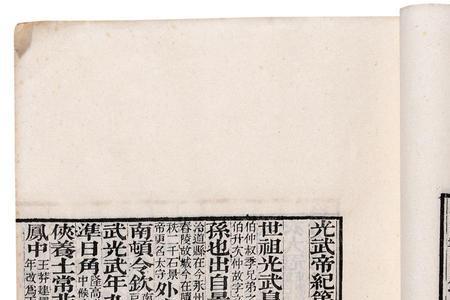 光武帝紀第
世祖光武皇
伯仲叔季兄弟之
伯升次仲故字
孫也出自景
道縣在今永州
舂陵故城今在隨
秩二千石景
帝更名太守外
南頓令欽
武光武年九
準日角隆高
中候
俠養士常非
鳳中王莽建
年改爲